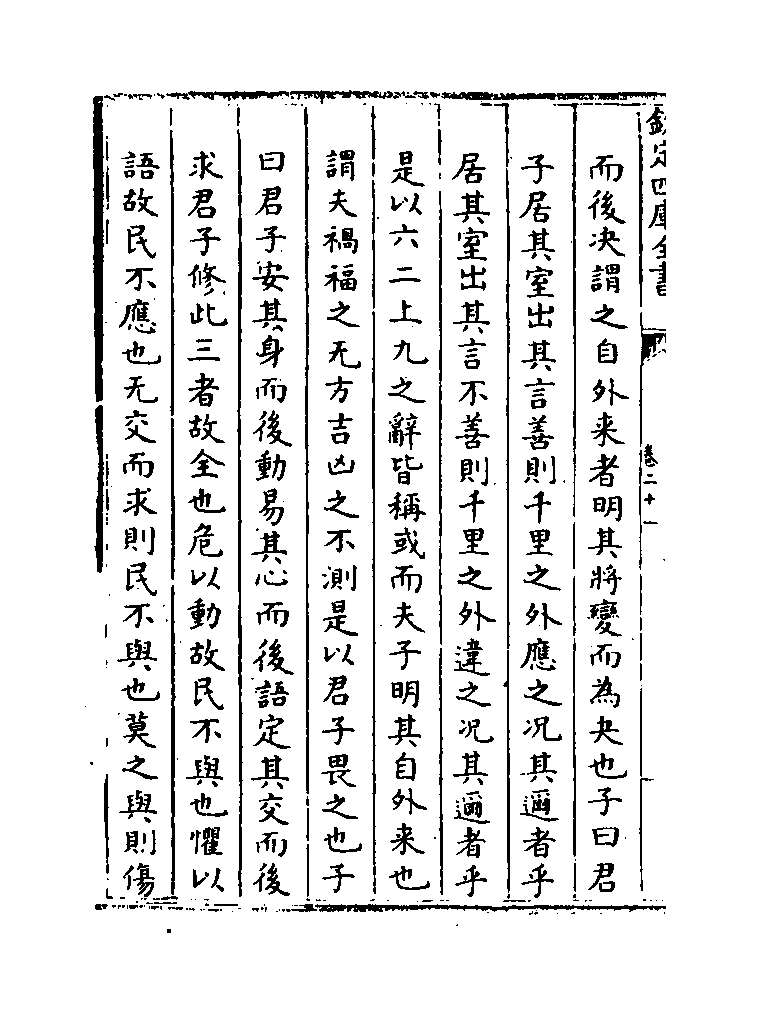 欽定四庫全書
卷二十一
而後决謂之自外来者明其將變而為夬也子曰君
子居其室出其言善則千里之外應之况其邇者乎
居其室出其言不善則千里之外違之况其邇者乎
是以六二上九之辭皆稱或而夫子明其自外来也
謂夫禍福之无方吉凶之不測是以君子畏之也子
曰君子安其身而後動易其心而後語定其交而後
求君子修此三者故全也危以動故民不與也懼以
語故民不應也无交而求則民不與也莫之與則傷